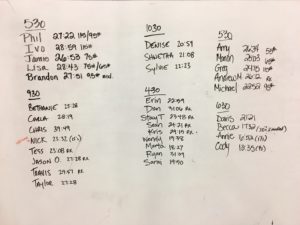 530
Phil 27:22 115/95#
Ivo 28:59 115#
Jamie 26:53 75#
Lisa 28:43 75#/65#
Brandon 27:51 95#
930
Bethanie 25:28
Carla 28:19
Chris 39:49
Nick 23:32
Tess 25:08 RX
Jason O. 27:28 RX
Travis 29:57 RX
Taylor 27:28
1030
Denise 20:59
Shwetha 21:08
Sylvie 22:23
430
Erin 22:59
Dan 21:06 RX
Stacy T 23:48 RX
Sean 24:21 RX
Kris 24:19 RX
Wendy 19:38
Marta 18:27
Ryan 31:09
Sara 19:50
530
Amy 26:34 55#
Martin 25:03
Greg 27:15
Andrew M 26:12 RX
Michael 22:52
630
Doris 21:21
Becca 17:32
Annie 16:52
Cody 18:35